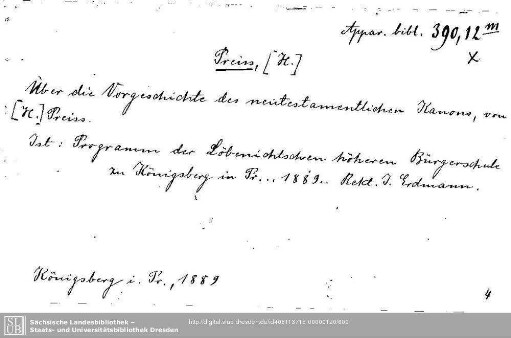 Appar. bibl. 390,12 m
x
Preiss, [H.]
Über die Vorgeschichte des neutestamentlichen Kanons, von
[H.] Preiss.
Ist: Programm der Löbenichtschen höheren Bürgerschule
zu Königsberg in Pr... 1889.. Rekt. J. Erdmann.
Königsberg i. Pr., 1889
4
SLUB
Sächsische Landesbibliothek –
Staats- und Universitätsbibliothek Dresden